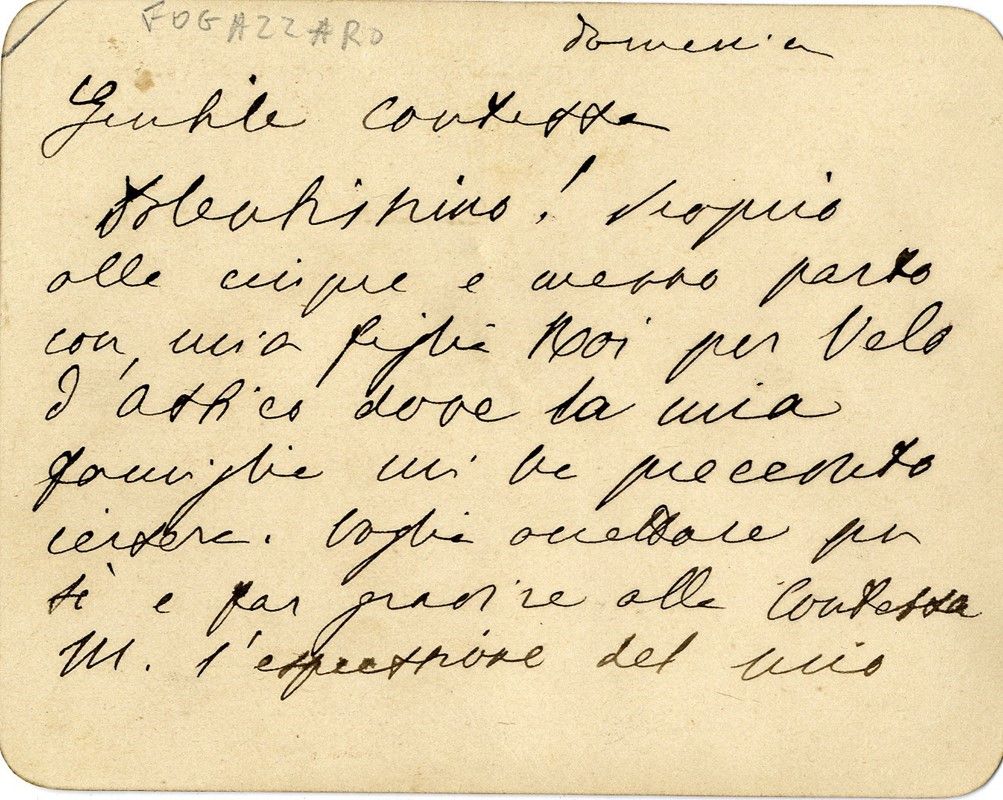 FOGAZZARO
domenica
Gentile Contessa
Dolentissimo! Proprio
alle cinque e mezzo parto
con mia figlia Roi per Velo
d'Astico dove la mia
famiglia mi ha preceduto
iersera. Voglia accettare per
sè e far gradire alla Contessa
M. l'espressione del mio